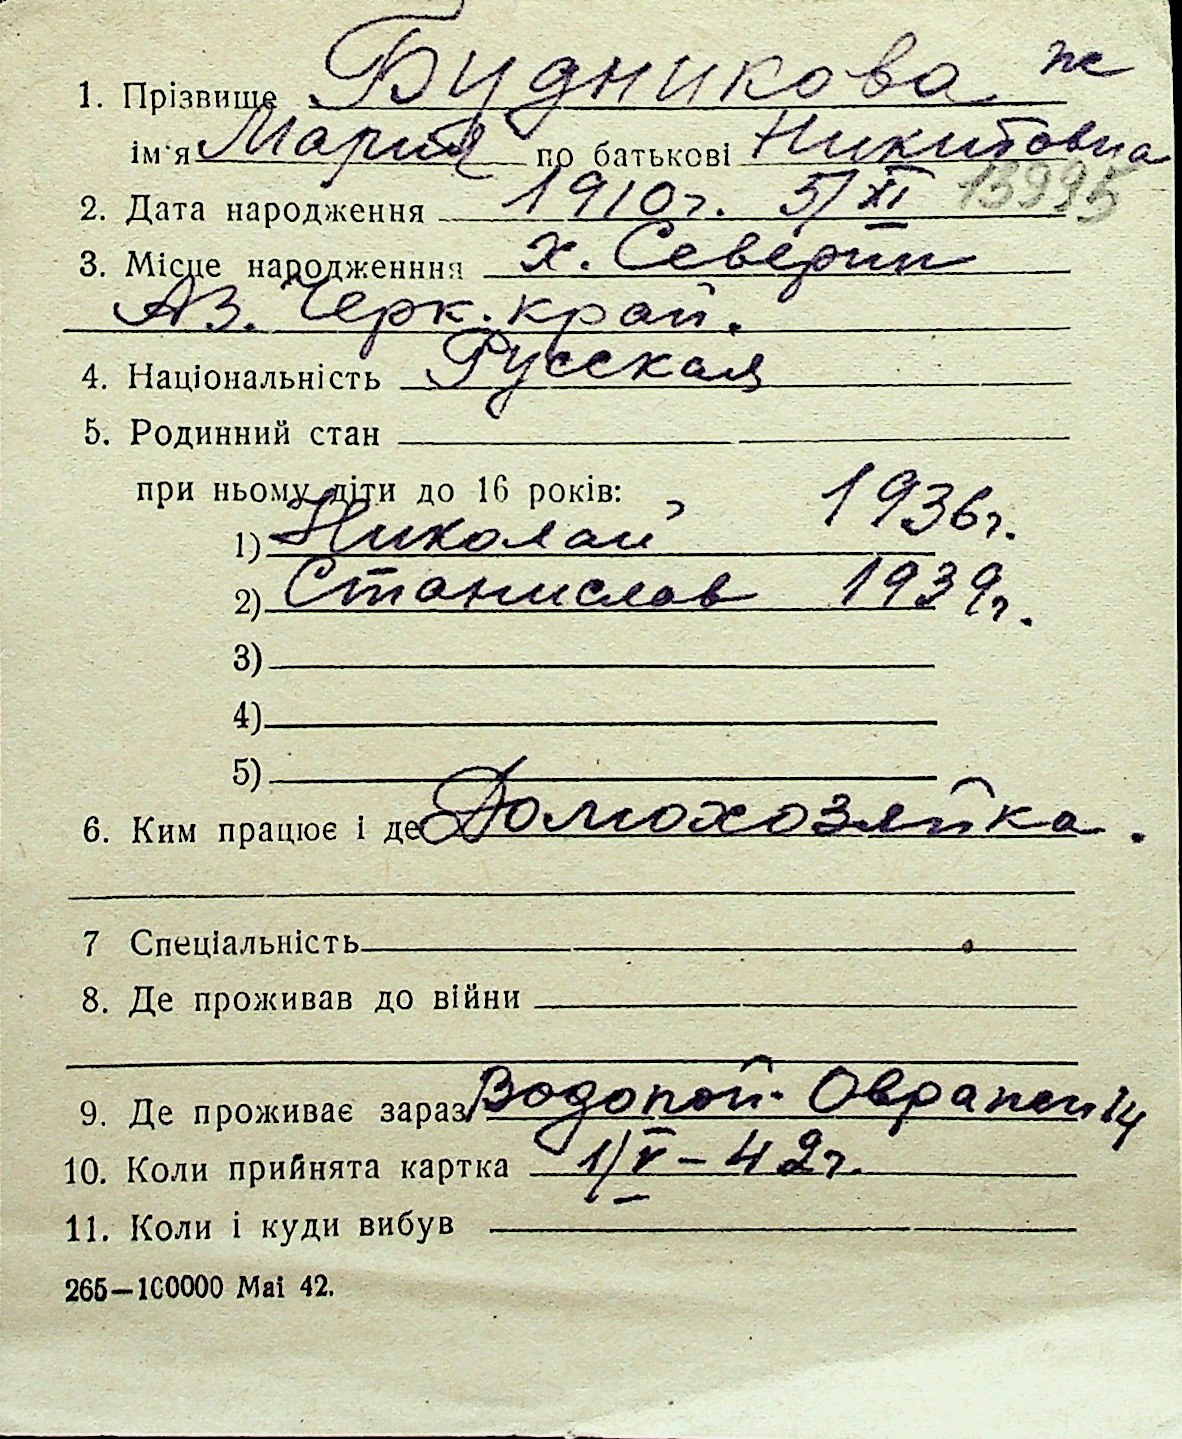 1. Прізвище Будникова ж
ім'я Мария по батькові Никитовна
2. Дата народження 1910г. 5/XI 13995
3. Місце народженння х. Северин
Аз. Черк. край.
4. Національність Русская
5. Родинний стан
при ньому діти до 16 років:
1) Николай 1936г.
2) Станислав 1939г.
3)
4)
5)
6. Ким працює і де Домохозяйка.
7 Спеціальність
8. Де проживав до війни
9. Де проживає зараз Водопой. 14
10. Коли прийнята картка 1/V-42г.
11. Коли і куди вибув
265—100000 Mai 42.